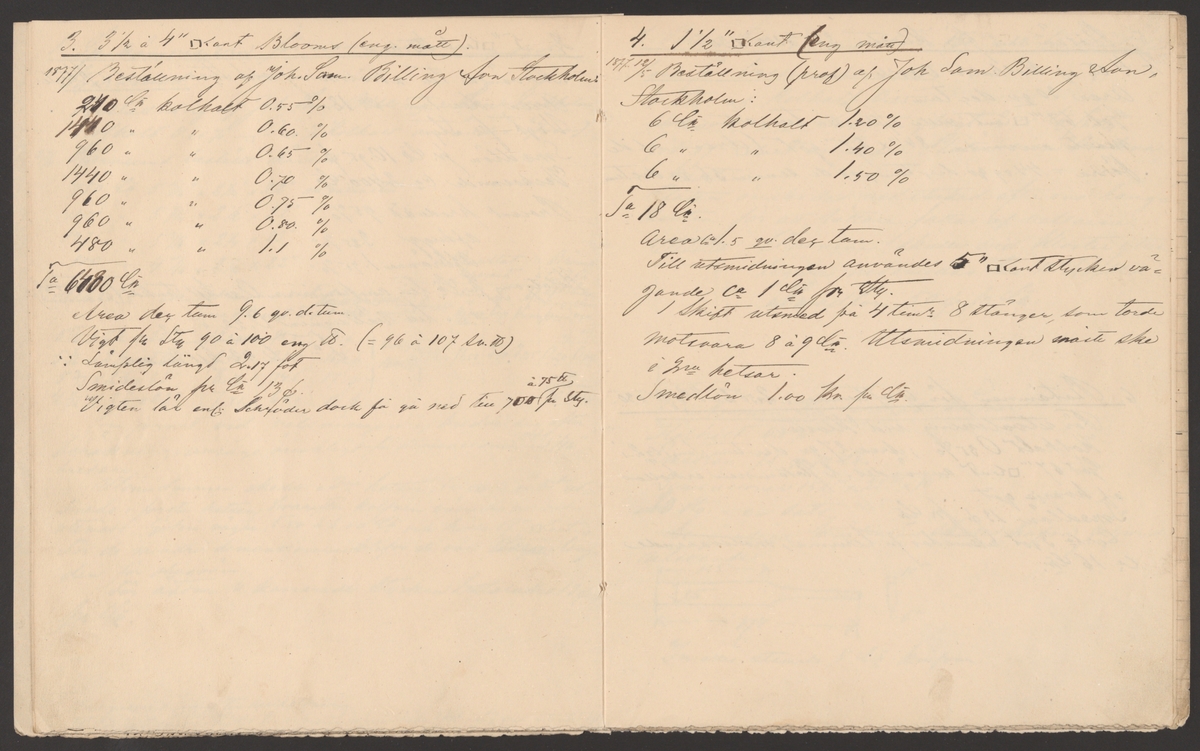 3. 3 1/2 à 4" □kant Blooms (eng. mått).
1877/ Beställning af Joh. Sam. Billing & son Stockholm:
240 Ctr kolhalt 0.55 %
1440 " " 0.60. %
960 " " 0.65 %
1440 " " 0.70 %
960 " " 0.75 %
960 " " 0.80. %
480 " " 1.1 %
Sa 6480 Ctr
Area dec. tum 9.6 qv. d:tum
Vigt pr St. 90 à 100 eng ℔. (= 96 à 107 sv. ℔)
∵ Lämplig längd 2.17 fot
Smideslön pr Ctr 13
Vigten lär enl. Schröder dock få gå ned till 70 à 75 ℔ pr St.
4. 1 1/2" □kant (eng mått)
1877 Beställning (prof) af Joh Sam. Billing & son,
Stockholm:
6 Ctr kolhalt 1.20 %
6 " " 1.40 %
6 " " 1.50 %
Sa 18 Ctr.
Area 1.5 qv. dec tum.
Till utsmidningen användes 5" □kant stycken vä-
gande ca 1 Ctr pr St.
1 skift utsmed på 4 tim:r 8 stänger, som torde
motsvara 8 à 9 Ctr. Utsmidningen måste ske
i 2ne hetsar.
Smedlön 1.00 Kr. pr Ctr.